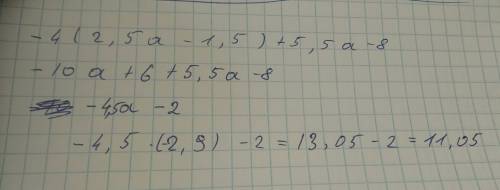 -4(2,5a -1,5)+5,5a-8
-10a+6+5,5a-8
-4,5a -2
-4,5 ·(-2,9) -2 = 13,05-2=11,05